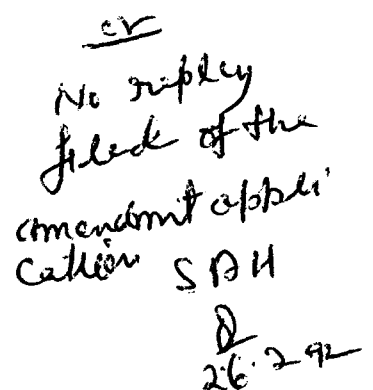 cr
No reply
filed of the
amendmnt appli
cation SDH
26.2.92